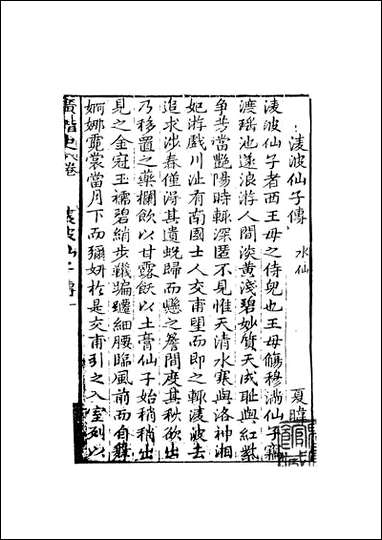 凌波仙子傳 水仙
夏暐
凌波仙子者西王母之侍兒也王母觴穆滿仙子竊
渡瑤池遂浪游人間淡黃淺碧妙質天成恥與紅紫
爭芳當艷陽時輙深匿不見惟天清水寒與洛神湘
妃游戲川沚有南國士人交甫望而即之輙凌波去
追求涉春僅得其遺蛻歸而懸之簷間度其秋欲出
乃移置之藥欄飲以甘露飲以土膏仙子始稍稍出
見之金冠玉襦碧綃步韈蹁躚細腰臨風前而自舞
婀娜霓裳當月下而彌妍於是交甫引之入室列以
廣諧史八卷 凌波仙子傳 一